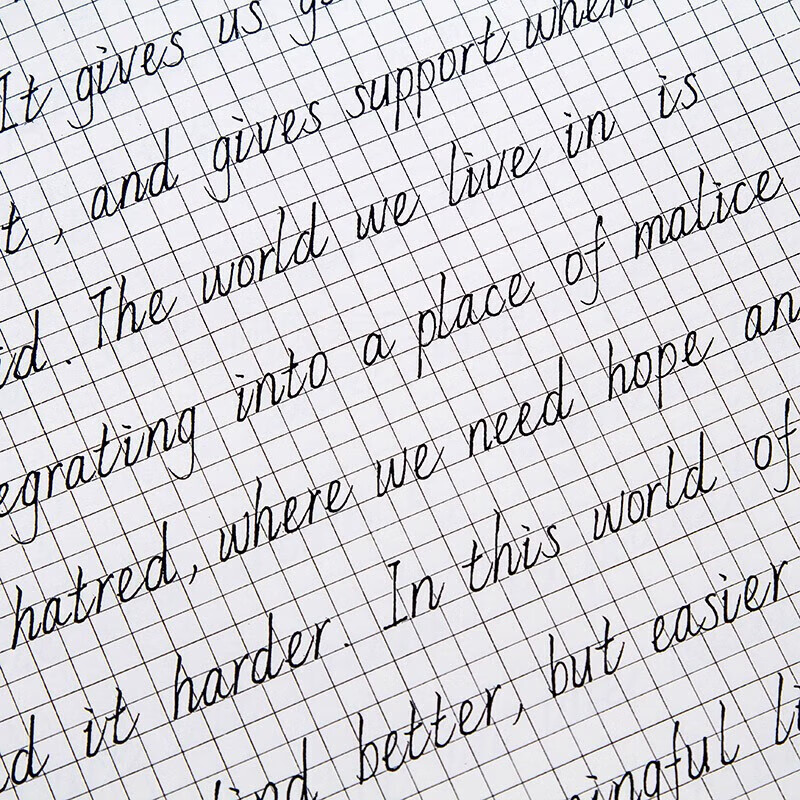 It gives us
t, and gives support when
id. The world we live in is
egrating into a place of malice
hatred, where we need hope an
d it harder. In this world of
ind better, but easier
ingful li